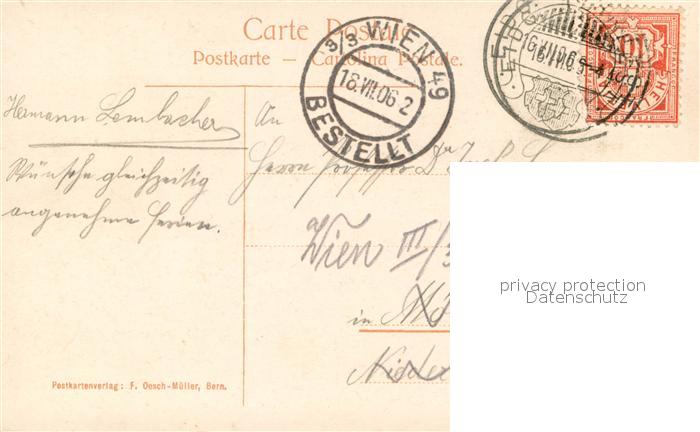 Carte Postale
Postkarte — Cartolina Postale.
3/3 WIEN 49
18.VII.06 2
BESTELLT
16.VII.06
10
HELVETIA
Hermann Lembacher
Wünsche gleichzeitig
angenehme Ferien.
An
Herrn Professor Dr
Wien III/3
in
privacy protection
Datenschutz
Postkartenverlag: F. Oesch-Müller, Bern.